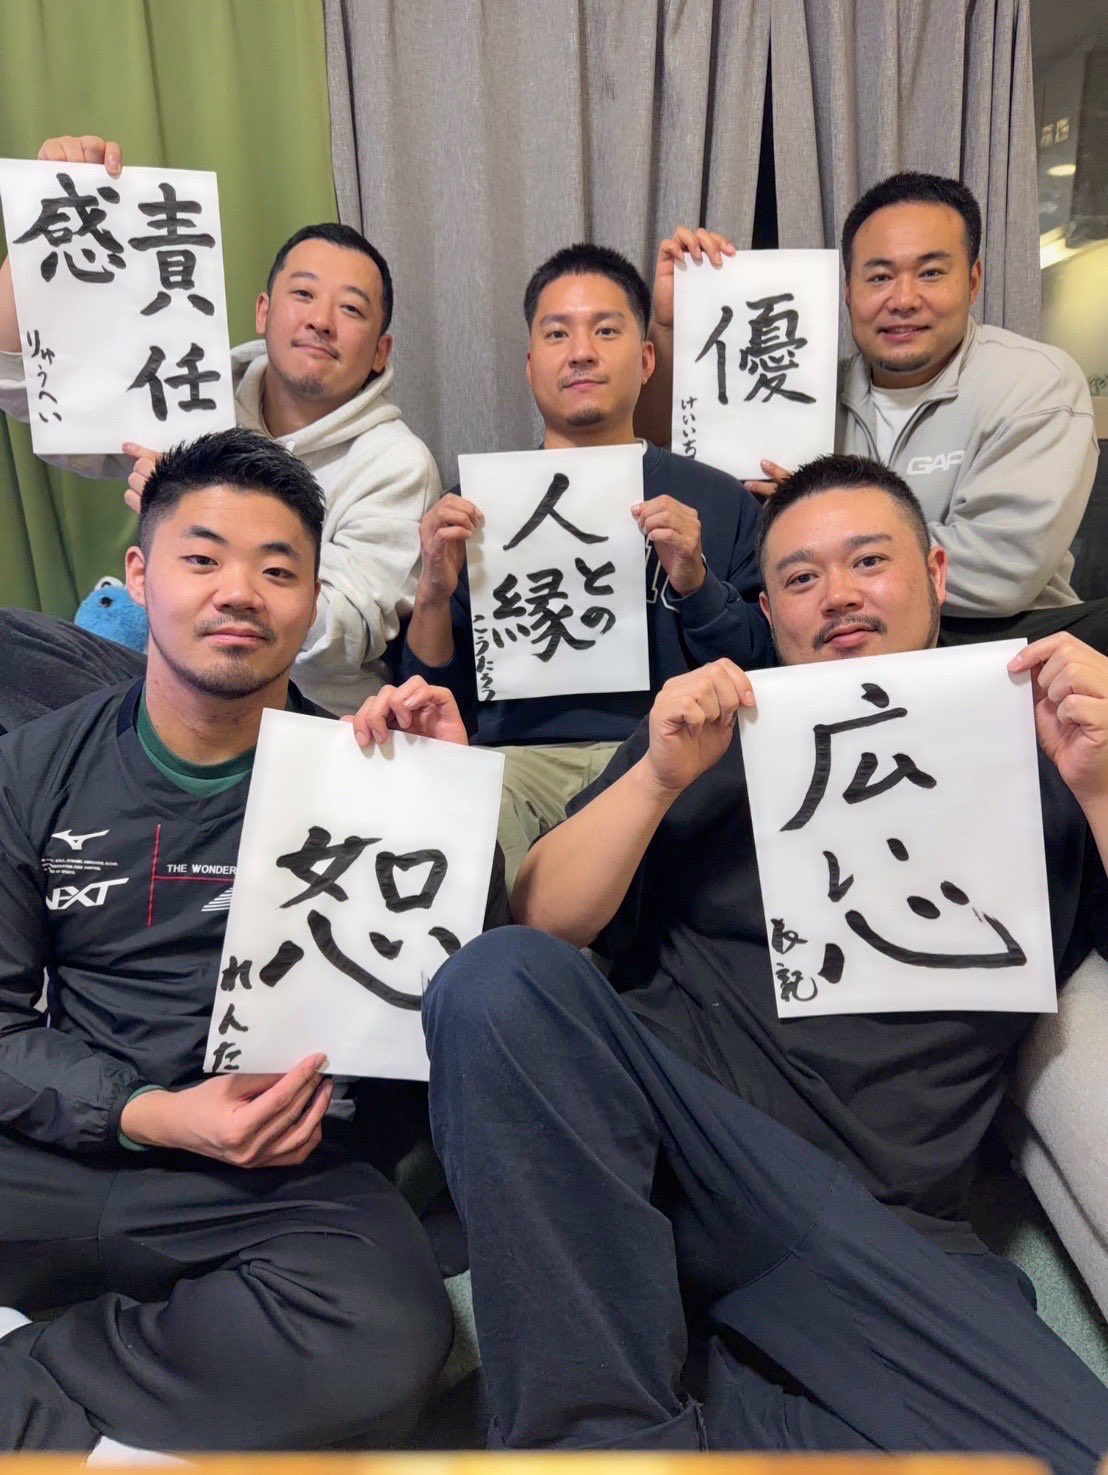 責任
感
りゅうへい
人
との
縁
こうたろう
優
けいいち
恕
れんた
広
心
GAP
THE WONDER
NEXT